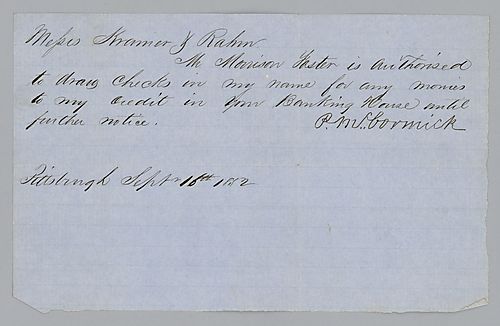 Messrs Kramer & Rahm
Mr Morrison Foster is authorised
to draw checks in my name for any monies
to my credit in your Banking House until
further notice.
P. McCormick
Pittsburgh Sept 16th 1852